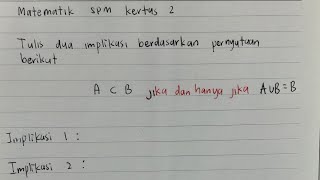 Matematik spm kertas 2
Tulis dua implikasi berdasarkan pernyataan
berikut
A ⊂ B jika dan hanya jika A∪B=B
Implikasi 1 :
Implikasi 2 :